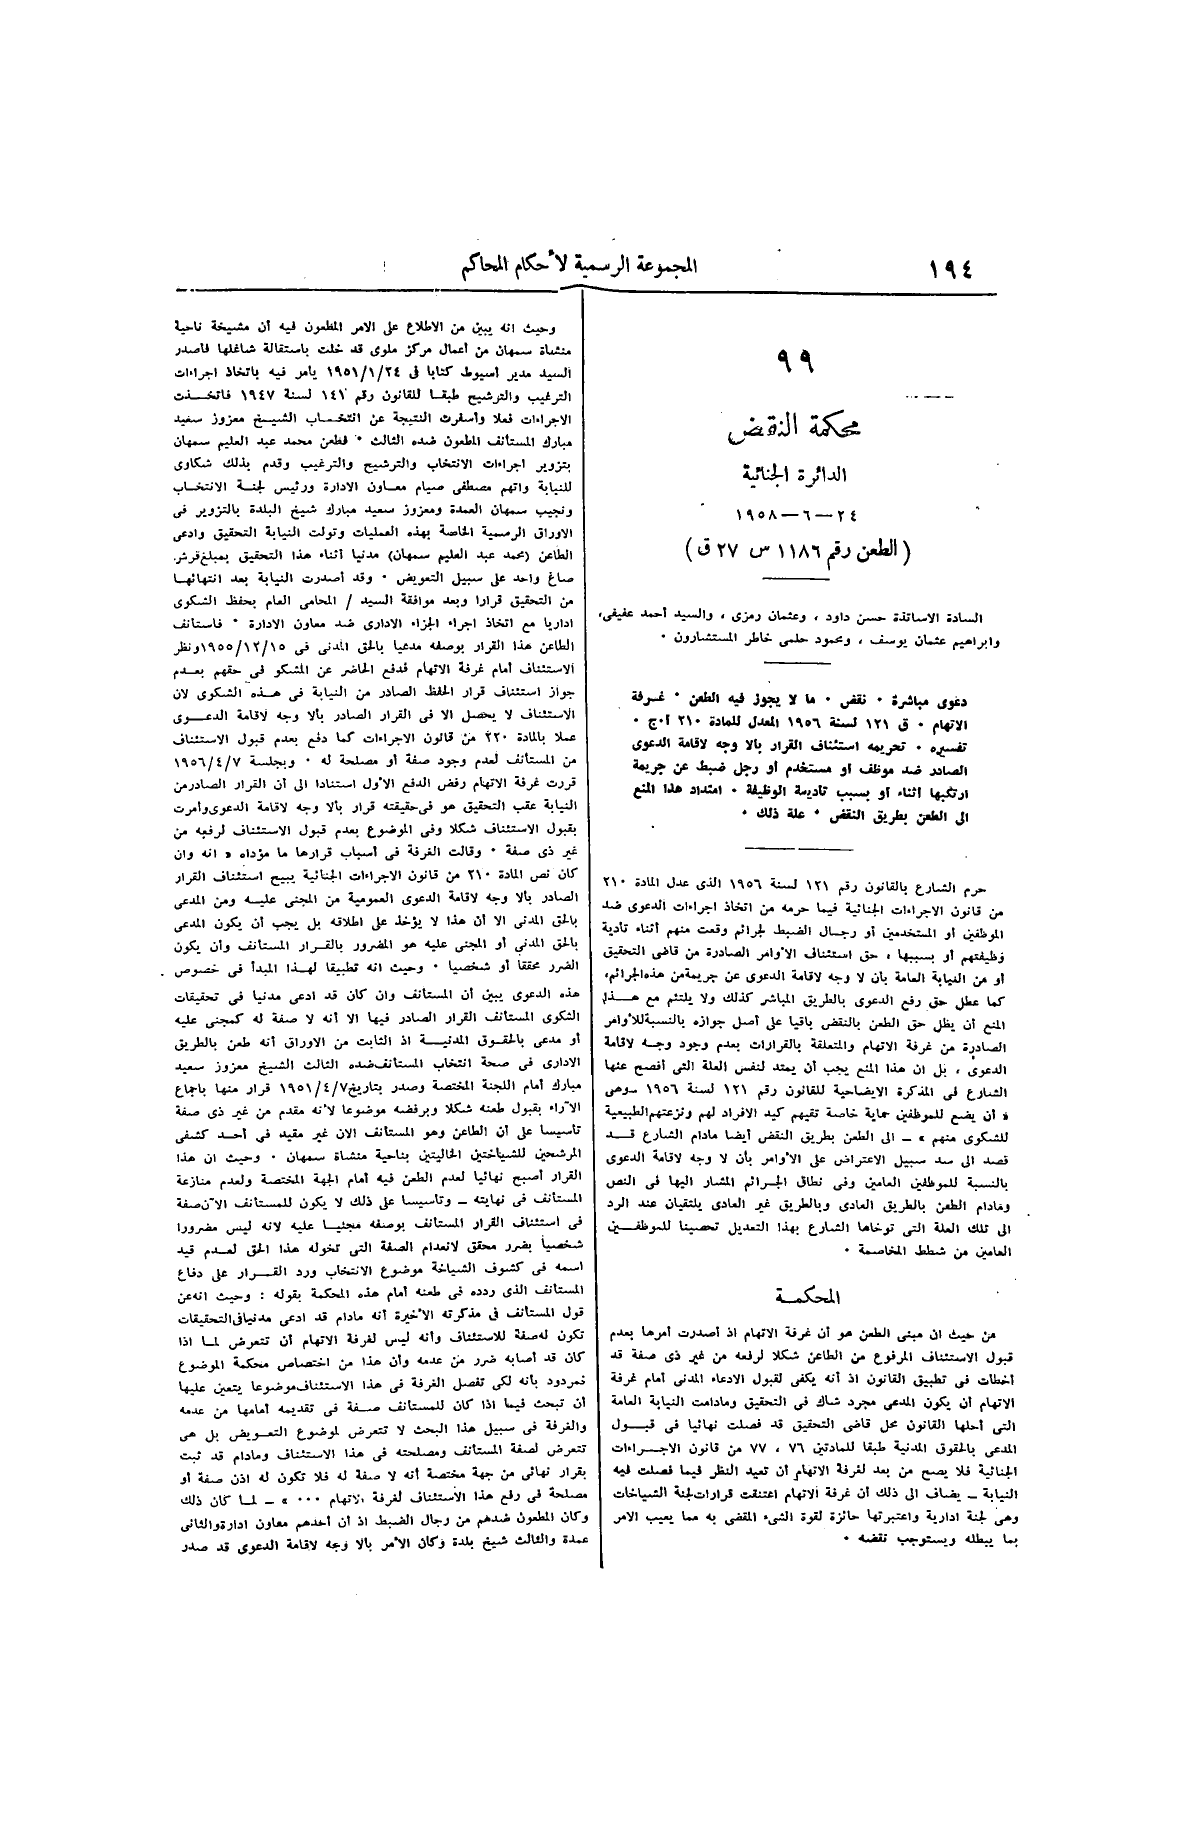 ١٩٤
المجموعة الرسمية لأحكام المحاكم
٩٩
محكمة النقض
الدائرة الجنائية
٢٤ — ٦ — ١٩٥٨
( الطعن رقم ١١٨٦ س ٢٧ ق )
السادة الاساتذة حسن داود ، وعثمان رمزى ، والسيد أحمد عفيفى،
وابراهيم عثمان يوسف ، ومحمود حلمى خاطر المستشارون ٠
دعوى مباشرة ٠ نقض ٠ ما لا يجوز فيه الطعن ٠ غرفة
الاتهام ٠ ق ١٢١ لسنة ١٩٥٦ المعدل للمادة ٢١٠ أ٠ج ٠
تفسيره ٠ تحريمه استئناف القرار بالا وجه لاقامة الدعوى
الصادر ضد موظف أو مستخدم أو رجل ضبط عن جريمة
ارتكبها أثناء أو بسبب تاديسة الوظيفة ٠ امتداد هذا المنع
الى الطعن بطريق النقض ٠ علة ذلك ٠
حرم الشارع بالقانون رقم ١٢١ لسنة ١٩٥٦ الذى عدل المادة ٢١٠
من قانون الاجراءات الجنائية فيما حرمه من اتخاذ اجراءات الدعوى ضد
الموظفين أو المستخدمين أو رجال الضبط لجرائم وقعت منهم أثناء تأدية
وظيفتهم أو بسببها ، حق استئناف الأوامر الصادرة من قاضى التحقيق
أو من النيابة العامة بأن لا وجه لاقامة الدعوى عن جريمةمن هذهالجرائم،
كما عطل حق رفع الدعوى بالطريق المباشر كذلك ولا يلتئم مع هـــذا
المنع أن يظل حق الطعن بالنقض باقيا على أصل جوازه بالنسبةللأوامر
الصادرة من غرفة الاتهام والمتعلقة بالقرارات بعدم وجود وجه لاقامة
الدعوى ، بل ان هذا المنع يجب أن يمتد لنفس العلة التى أفصح عنها
الشارع فى المذكرة الايضاحية للقانون رقم ١٢١ لسنة ١٩٥٦ ـوهى
« أن يضع للموظفين حماية خاصة تقيهم كيد الافراد لهم ونزعتهمالطبيعية
للشكوى منهم » ـ الى الطعن بطريق النقض أيضا مادام الشارع قــد
قصد الى سد سبيل الاعتراض على الأوامر بأن لا وجه لاقامة الدعوى
بالنسبة للموظفين العامين وفى نطاق الجرائم المشار اليها فى النص
ومادام الطعن بالطريق العادى وبالطريق غير العادى يلتقيان عند الرد
الى تلك العلة التى توخاها الشارع بهذا التعديل تحصينا للموظفــين
العامين من شطط المخاصمة ٠
المحكمــة
من حيث ان مبنى الطعن هو أن غرفة الاتهام اذ أصدرت أمرها بعدم
قبول الاستئناف المرفوع من الطاعن شكلا لرفعه من غير ذى صفة قد
أخطأت فى تطبيق القانون اذ أنه يكفى لقبول الادعاء المدنى أمام غرفة
الاتهام أن يكون المدعى مجرد شاك فى التحقيق ومادامت النيابة العامة
التى أحلها القانون محل قاضى التحقيق قد فصلت نهائيا فى قبـول
المدعى بالحقوق المدنية طبقا للمادتين ٧٦ ، ٧٧ من قانون الاجـراءات
الجنائية فلا يصح من بعد لغرفة الاتهام أن تعيد النظر فيما فصلت فيه
النيابة ـ يضاف الى ذلك أن غرفة الاتهام اعتنقت قراراتلجنة الشياخات
وهى لجنة ادارية واعتبرتها حائزة لقوة الشىء المقضى به مما يعيب الامر
بما يبطله ويستوجب نقضه ٠
وحيث انه يبين من الاطلاع على الامر المطعون فيه أن مشيخة ناحية
منشاة سمهان من أعمال مركز ملوى قد خلت باستقالة شاغلها فأصدر
السيد مدير أسيوط كتابا فى ١٩٥١/١/٢٤ يأمر فيه باتخاذ اجراءات
الترغيب والترشيح طبقا للقانون رقم ١٤١ لسنة ١٩٤٧ فاتخـــذت
الاجراءات فعلا وأسفرت النتيجة عن انتخـاب الشيـخ معزوز سعيد
مبارك المستأنف المطعون ضده الثالث ٠ فطعن محمد عبد العليم سمهان
بتزوير اجراءات الانتخاب والترشيح والترغيب وقدم بذلك شكاوى
للنيابة واتهم مصطفى صيام معاون الادارة ورئيس لجنة الانتخاب
ونجيب سمهان العمدة ومعزوز سعيد مبارك شيخ البلدة بالتزوير فى
الاوراق الرسمية الخاصة بهذه العمليات وتولت النيابة التحقيق وادعى
الطاعن (محمد عبد العليم سمهان) مدنيا أثناء هذا التحقيق بمبلغقرش
صاغ واحد على سبيل التعويض ٠ وقد أصدرت النيابة بعد انتهائهـا
من التحقيق قرارا وبعد موافقة السيد / المحامى العام بحفظ الشكوى
اداريا مع اتخاذ اجراء الجزاء الادارى ضد معاون الادارة ٠ فاستأنف
الطاعن هذا القرار بوصفه مدعيا بالحق المدنى فى ١٩٥٥/١٢/١٥ونظر
الاستئناف أمام غرفة الاتهام فدفع الحاضر عن المشكو فى حقهم بعـدم
جواز استئناف قرار الحفظ الصادر من النيابة فى هـذه الشكوى لان
الاستئناف لا يحصل الا فى القرار الصادر بألا وجه لاقامة الدعــوى
عملا بالمادة ٢٢٠ من قانون الاجراءات كما دفع بعدم قبول الاستئناف
من المستأنف لعدم وجود صفة أو مصلحة له ٠ وبجلسة ١٩٥٦/٤/٧
قررت غرفة الاتهام رفض الدفع الأول استنادا الى أن القرار الصادرمن
النيابة عقب التحقيق هو فىحقيقته قرار بألا وجه لاقامة الدعوىوأمرت
بقبول الاستئناف شكلا وفى الموضوع بعدم قبول الاستئناف لرفعه من
غير ذى صفة ٠ وقالت الغرفة فى أسباب قرارها ما مؤداه « انه وان
كان نص المادة ٢١٠ من قانون الاجراءات الجنائية يبيح استئناف القرار
الصادر بألا وجه لاقامة الدعوى العمومية من المجنى عليــه ومن المدعى
بالحق المدنى الا أن هذا لا يؤخذ على اطلاقه بل يجب أن يكون المدعى
بالحق المدنى أو المجنى عليه هو المضرور بالقـرار المستأنف وأن يكون
الضرر محققا أو شخصيا ٠ وحيث انه تطبيقا لهـذا المبدأ فى خصوص
هذه الدعوى يبين أن المستأنف وان كان قد ادعى مدنيا فى تحقيقات
الشكوى المستأنف القرار الصادر فيها الا أنه لا صفة له كمجنى عليه
أو مدعى بالحقـوق المدنيــة اذ الثابت من الاوراق أنه طعن بالطريق
الادارى فى صحة انتخاب المستأنفضده الثالث الشيخ معزوز سعيد
مبارك أمام اللجنة المختصة وصدر بتاريخ١٩٥١/٤/٧ قرار منها باجماع
الآراء بقبول طعنه شكلا وبرفضه موضوعا لأنه مقدم من غير ذى صفة
تأسيسا على أن الطاعن وهو المستأنف الان غير مقيد فى أحـد كشفى
المرشحين للشياختين الخاليتين بناحية منشاة سمهان ٠ وحيث ان هذا
القرار أصبح نهائيا لعدم الطعن فيه أمام الجهة المختصة ولعدم منازعة
المستأنف فى نهايته ـ وتأسيسا على ذلك لا يكون للمستأنف الآنصفة
فى استئناف القرار المستأنف بوصفه مجنيـا عليه لانه ليس مضرورا
شخصيا بضرر محقق لانعدام الصفة التى تخوله هذا الحق لعـدم قيد
اسمه فى كشوف الشياخة موضوع الانتخاب ورد القــرار على دفاع
المستأنف الذى ردده فى طعنه أمام هذه المحكمة بقوله : وحيث انهعن
قول المستأنف فى مذكرته الأخيرة أنه مادام قد ادعى مدنيافىالتحقيقات
تكون لهصفة للاستئناف وأنه ليس لغرفة الاتهام أن تتعرض لمـا اذا
كان قد أصابه ضرر من عدمه وأن هذا من اختصاص محكمة الموضوع
فمردود بأنه لكى تفصل الغرفة فى هذا الاستئنافموضوعا يتعين عليها
أن تبحث فيما اذا كان للمستأنف صـفة فى تقديمه أمامها من عدمه
والغرفة فى سبيل هذا البحث لا تتعرض لموضوع التعـويض بل هى
تتعرض لصفة المستأنف ومصلحته فى هذا الاستئناف ومادام قد ثبت
بقرار نهائى من جهة مختصة أنه لا صفة له فلا تكون له اذن صفة أو
مصلحة فى رفع هذا الاستئناف لغرفة الاتهام ٠٠٠ » ـ لمـا كان ذلك
وكان المطعون ضدهم من رجال الضبط اذ أن أحدهم معاون ادارةوالثانى
عمدة والثالث شيخ بلدة وكان الأمر بألا وجه لاقامة الدعوى قد صدر